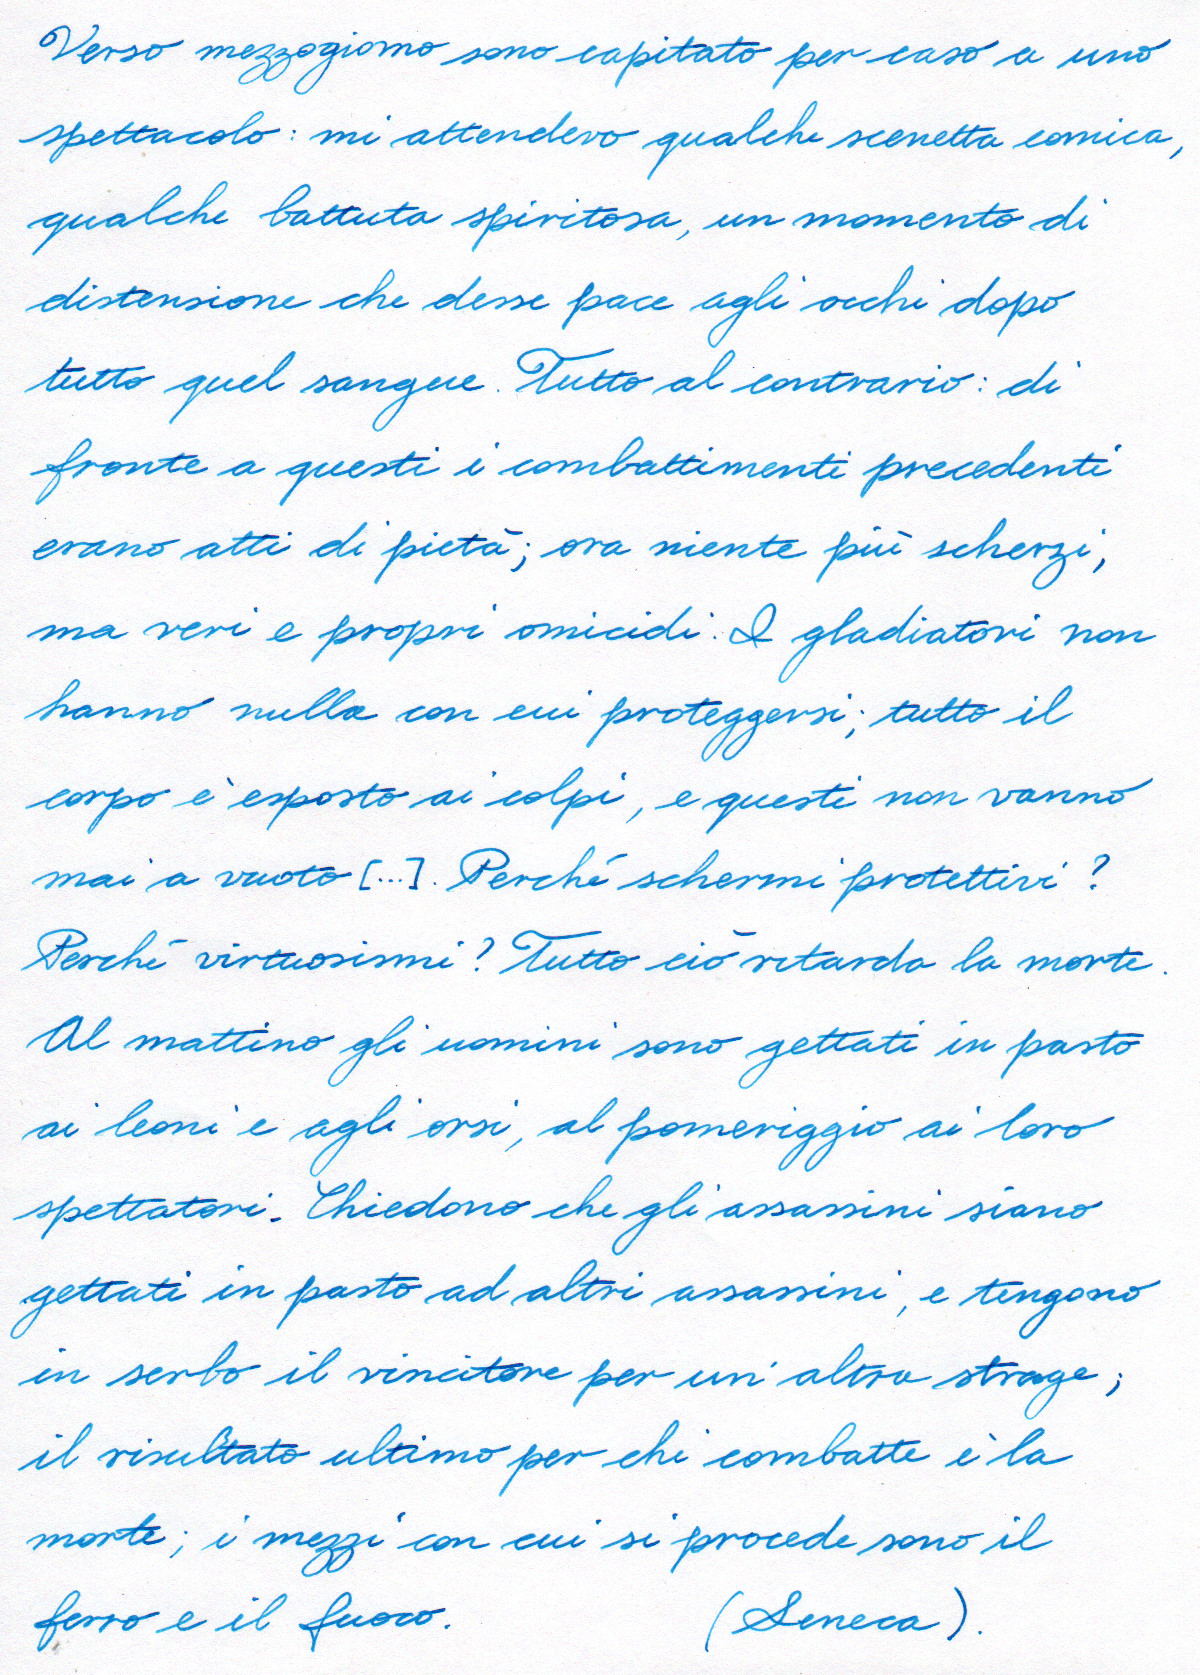 Verso mezzogiorno sono capitato per caso a uno
spettacolo: mi attendevo qualche scenetta comica,
qualche battuta spiritosa, un momento di
distensione che desse pace agli occhi dopo
tutto quel sangue. Tutto al contrario: di
fronte a questi i combattimenti precedenti
erano atti di pietà; ora niente più scherzi,
ma veri e propri omicidi. I gladiatori non
hanno nulla con cui proteggersi; tutto il
corpo è esposto ai colpi, e questi non vanno
mai a vuoto [...]. Perché schermi protettivi?
Perché virtuosismi? Tutto ciò ritarda la morte.
Al mattino gli uomini sono gettati in pasto
ai leoni e agli orsi, al pomeriggio ai loro
spettatori. Chiedono che gli assassini siano
gettati in pasto ad altri assassini, e tengono
in serbo il vincitore per un'altra strage;
il risultato ultimo per chi combatte è la
morte; i mezzi con cui si procede sono il
ferro e il fuoco. (Seneca).